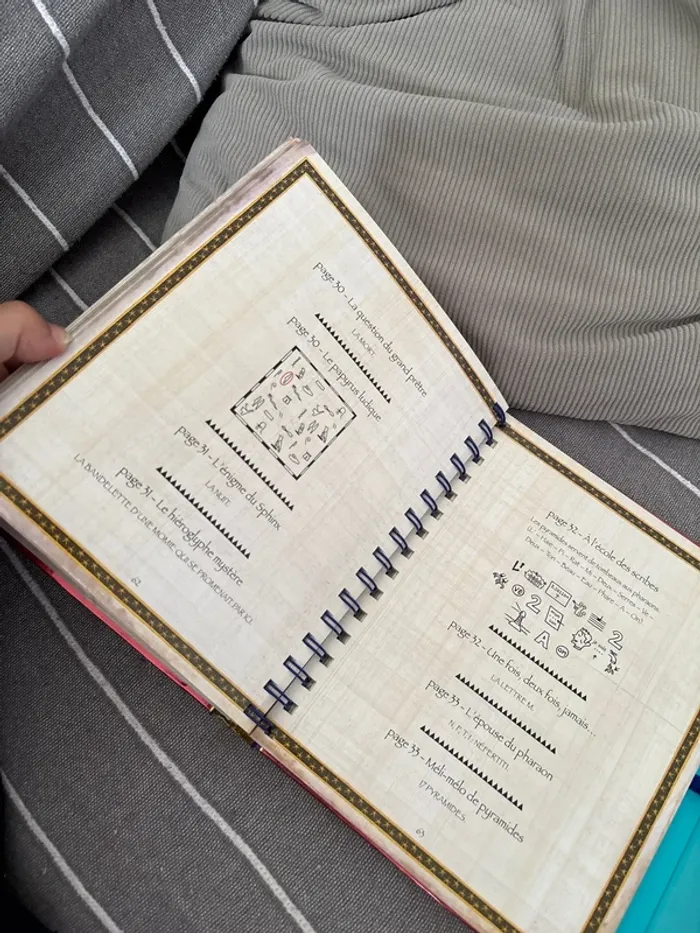 page 30 - La question du grand prêtre
LA MORT.
page 30 - Le papyrus ludique
page 31 - L'énigme du Sphinx
LA NUIT.
page 31 - Le hiéroglyphe mystère
LA BANDELETTE D'UNE MOMIE QUI SE PROMENAIT PAR ICI.
62
page 32 - A l'école des scribes
Les pyramides servent de tombeaux aux pharaons.
(L' - Haie - Pi - Rat - Mi - Deux - Serres - Ve -
Deux - Ton - Beau - Eau - Phare - A - On)
L'
VE
2
2
A
on
page 32 - Une fois, deux fois, jamais...
LA LETTRE M.
page 33 - L'épouse du pharaon
N, F, T, I : NÉFERTITI.
page 33 - Méli-mélo de pyramides
17 PYRAMIDES.
63